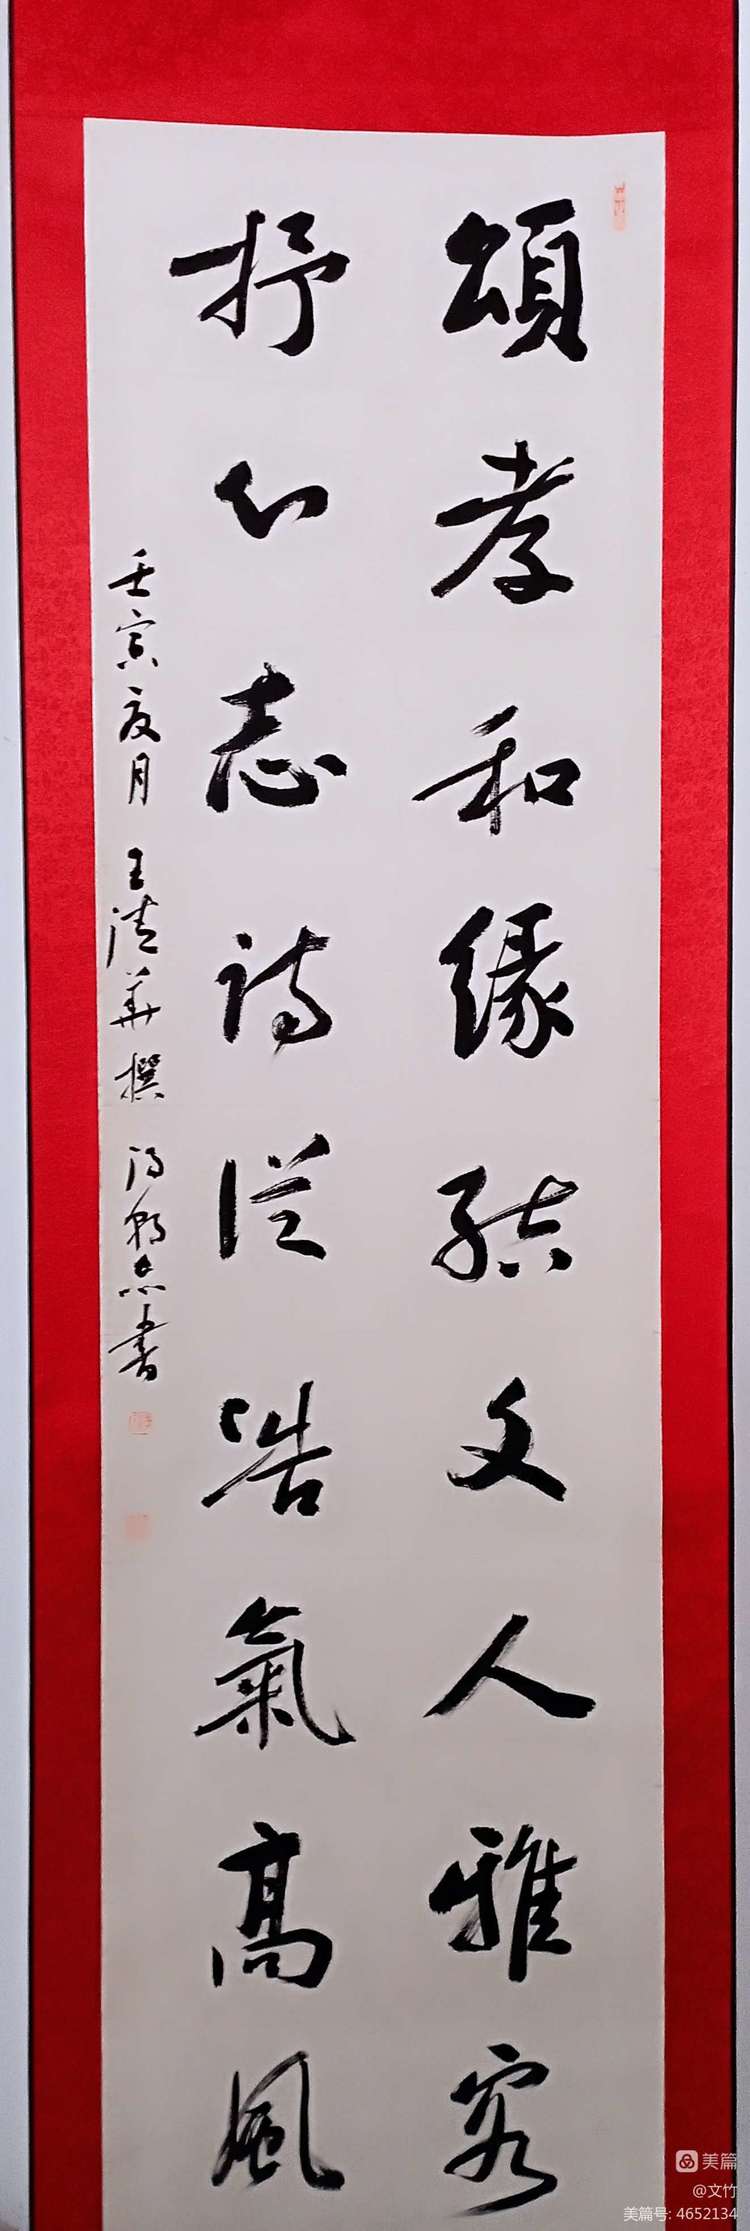 頌孝和緣結文人雅客
抒心志詩從浩氣高風
壬寅夏月 王清華撰 書
美篇
@文竹
美篇号: 4652134